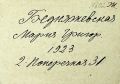 Бедняжевская
Мария Григор.
1923
2 Поперечная 31